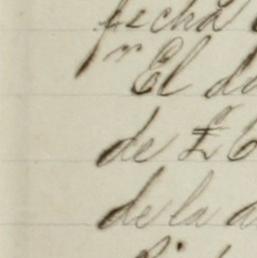 fecha
El do
de £ 6
de la a